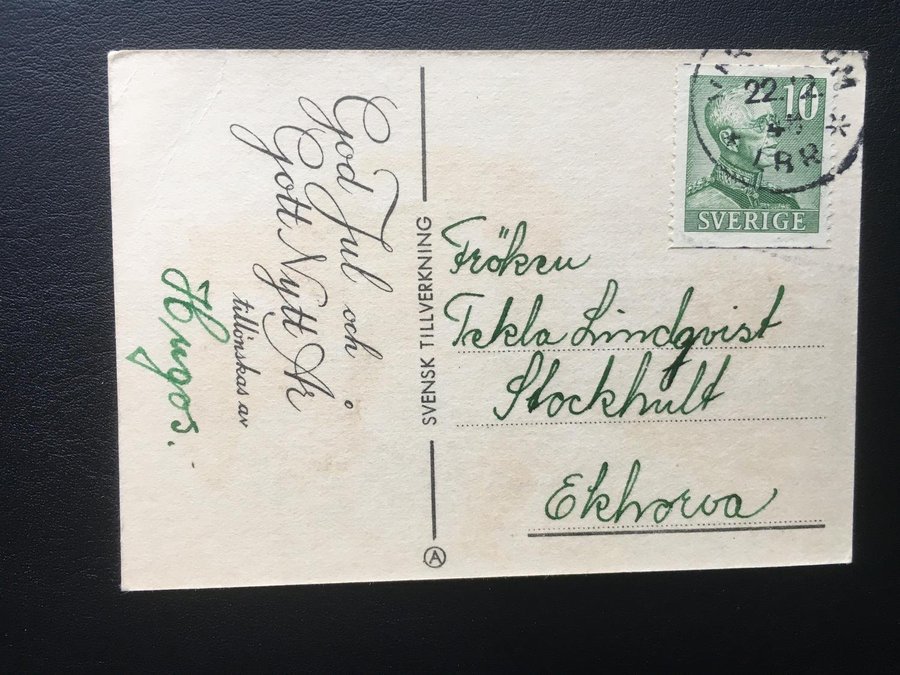 God Jul och
Gott Nytt År
tillönskas av
Hugos.
SVENSK TILLVERKNING
A
10
SVERIGE
22.12.
LBR
Fröken
Tekla Lindqvist
Stockhult
Ekhorva